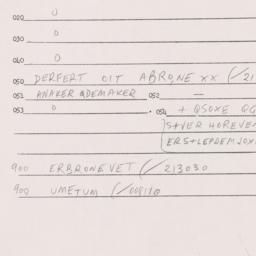 020 0
030 0
040 0
050 DERFERT OIT ABRONE XX (/21
051 ANAKER QDEMAKER 052 —
053 0 054 + QSOXE QG
STVER HOREVEN
ERS+LEPDEMJOX
900 ERBRONEVET (/213030
900 UMETUM (/009110